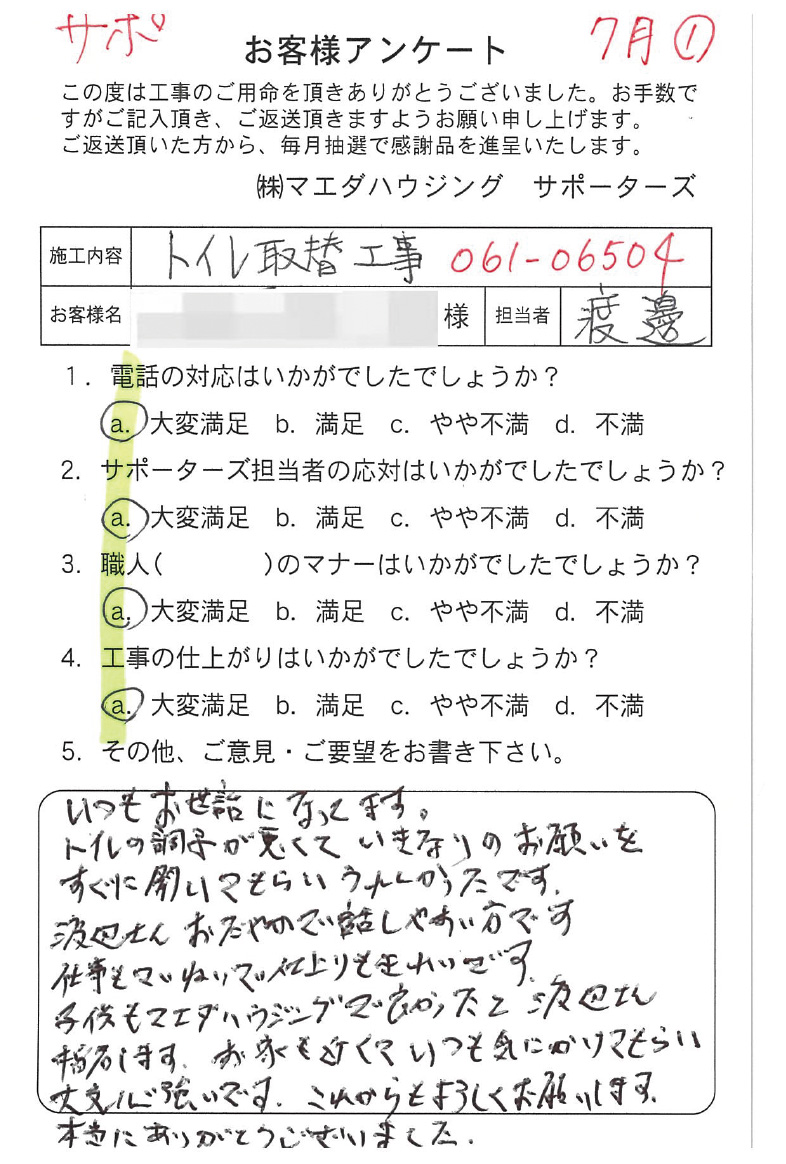 サポ
7月①
お客様アンケート
この度は工事のご用命を頂きありがとうございました。お手数で
すがご記入頂き、ご返送頂きますようお願い申し上げます。
ご返送頂いた方から、毎月抽選で感謝品を進呈いたします。
㈱マエダハウジング サポーターズ
施工内容 トイレ取替工事 061-06504
お客様名 様 担当者 渡邊
1. 電話の対応はいかがでしたでしょうか？
a. 大変満足 b. 満足 c. やや不満 d. 不満
2. サポーターズ担当者の応対はいかがでしたでしょうか？
a. 大変満足 b. 満足 c. やや不満 d. 不満
3. 職人( )のマナーはいかがでしたでしょうか？
a. 大変満足 b. 満足 c. やや不満 d. 不満
4. 工事の仕上がりはいかがでしたでしょうか？
a. 大変満足 b. 満足 c. やや不満 d. 不満
5. その他、ご意見・ご要望をお書き下さい。
いつもお世話になってます。
トイレの調子が悪くていきなりのお願いを
すぐに聞いてもらいうれしかったです。
渡辺さんおだやかで話しやすい方です
仕事もていねいで仕上りもきれいです。
子供もマエダハウジングで良かったと渡辺さん
指名します。お家も近くていつも気にかけてもらい
大変心強いです。これからもよろしくお願いします。
本当にありがとうございました。